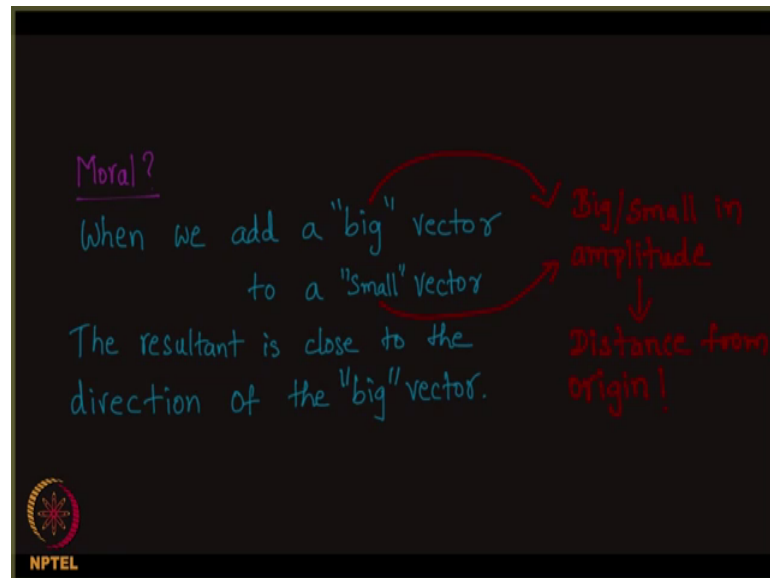 Moral?
When we add a "big" vector
to a "small" vector
The resultant is close to the
direction of the "big" vector.
Big/small in
amplitude
Distance from
origin!
NPTEL